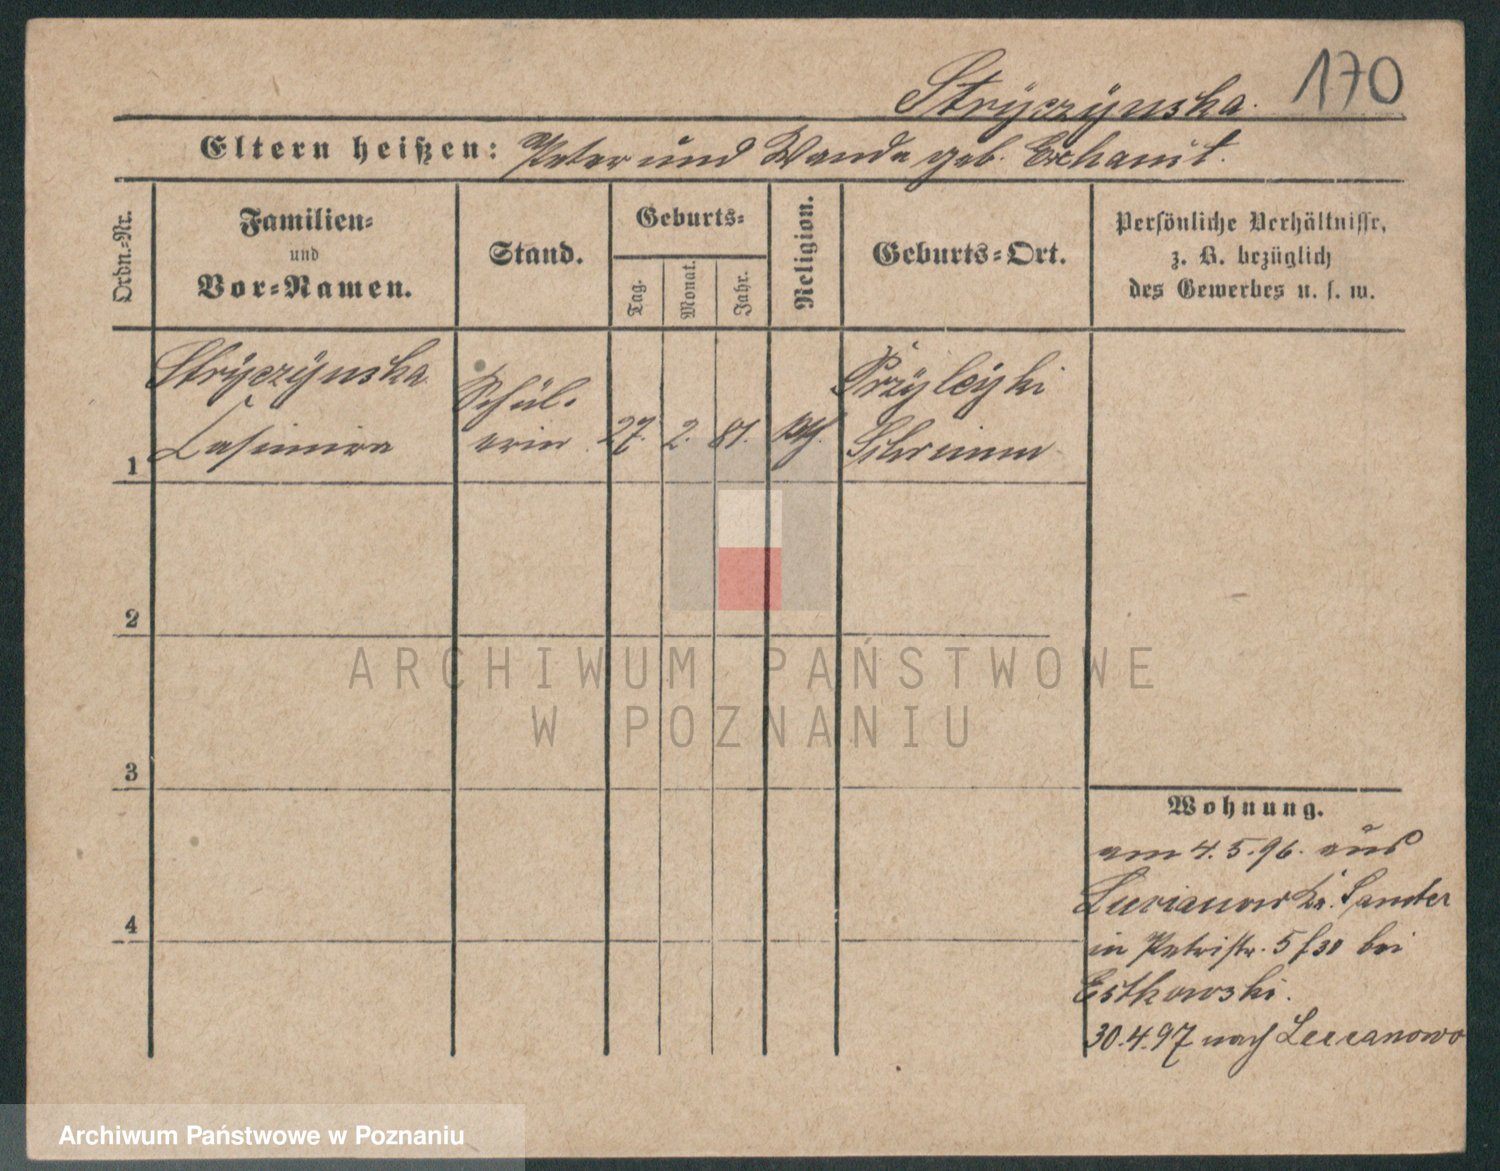 Stryczynska. 170
Eltern heißen: Peter und Wanda geb.
Ordn.-Nr.
Familien-
und
Vor-Namen.
Stand.
Geburts-
Tag.
Monat.
Jahr.
Religion.
Geburts-Ort.
Persönliche Verhältnisse,
z. B. bezüglich
des Gewerbes u. s. w.
1
Stryczynska
Casimira
Schül-
erin
27. 2. 81.
Schrimm
2
3
4
Wohnung.
am 4.5.96. aus
Lucianowo Kr. Samter
in Petristr. 5 bei
Estkowski.
30.4.97 nach Lucianowo
ARCHIWUM PAŃSTWOWE
W POZNANIU
Archiwum Państwowe w Poznaniu